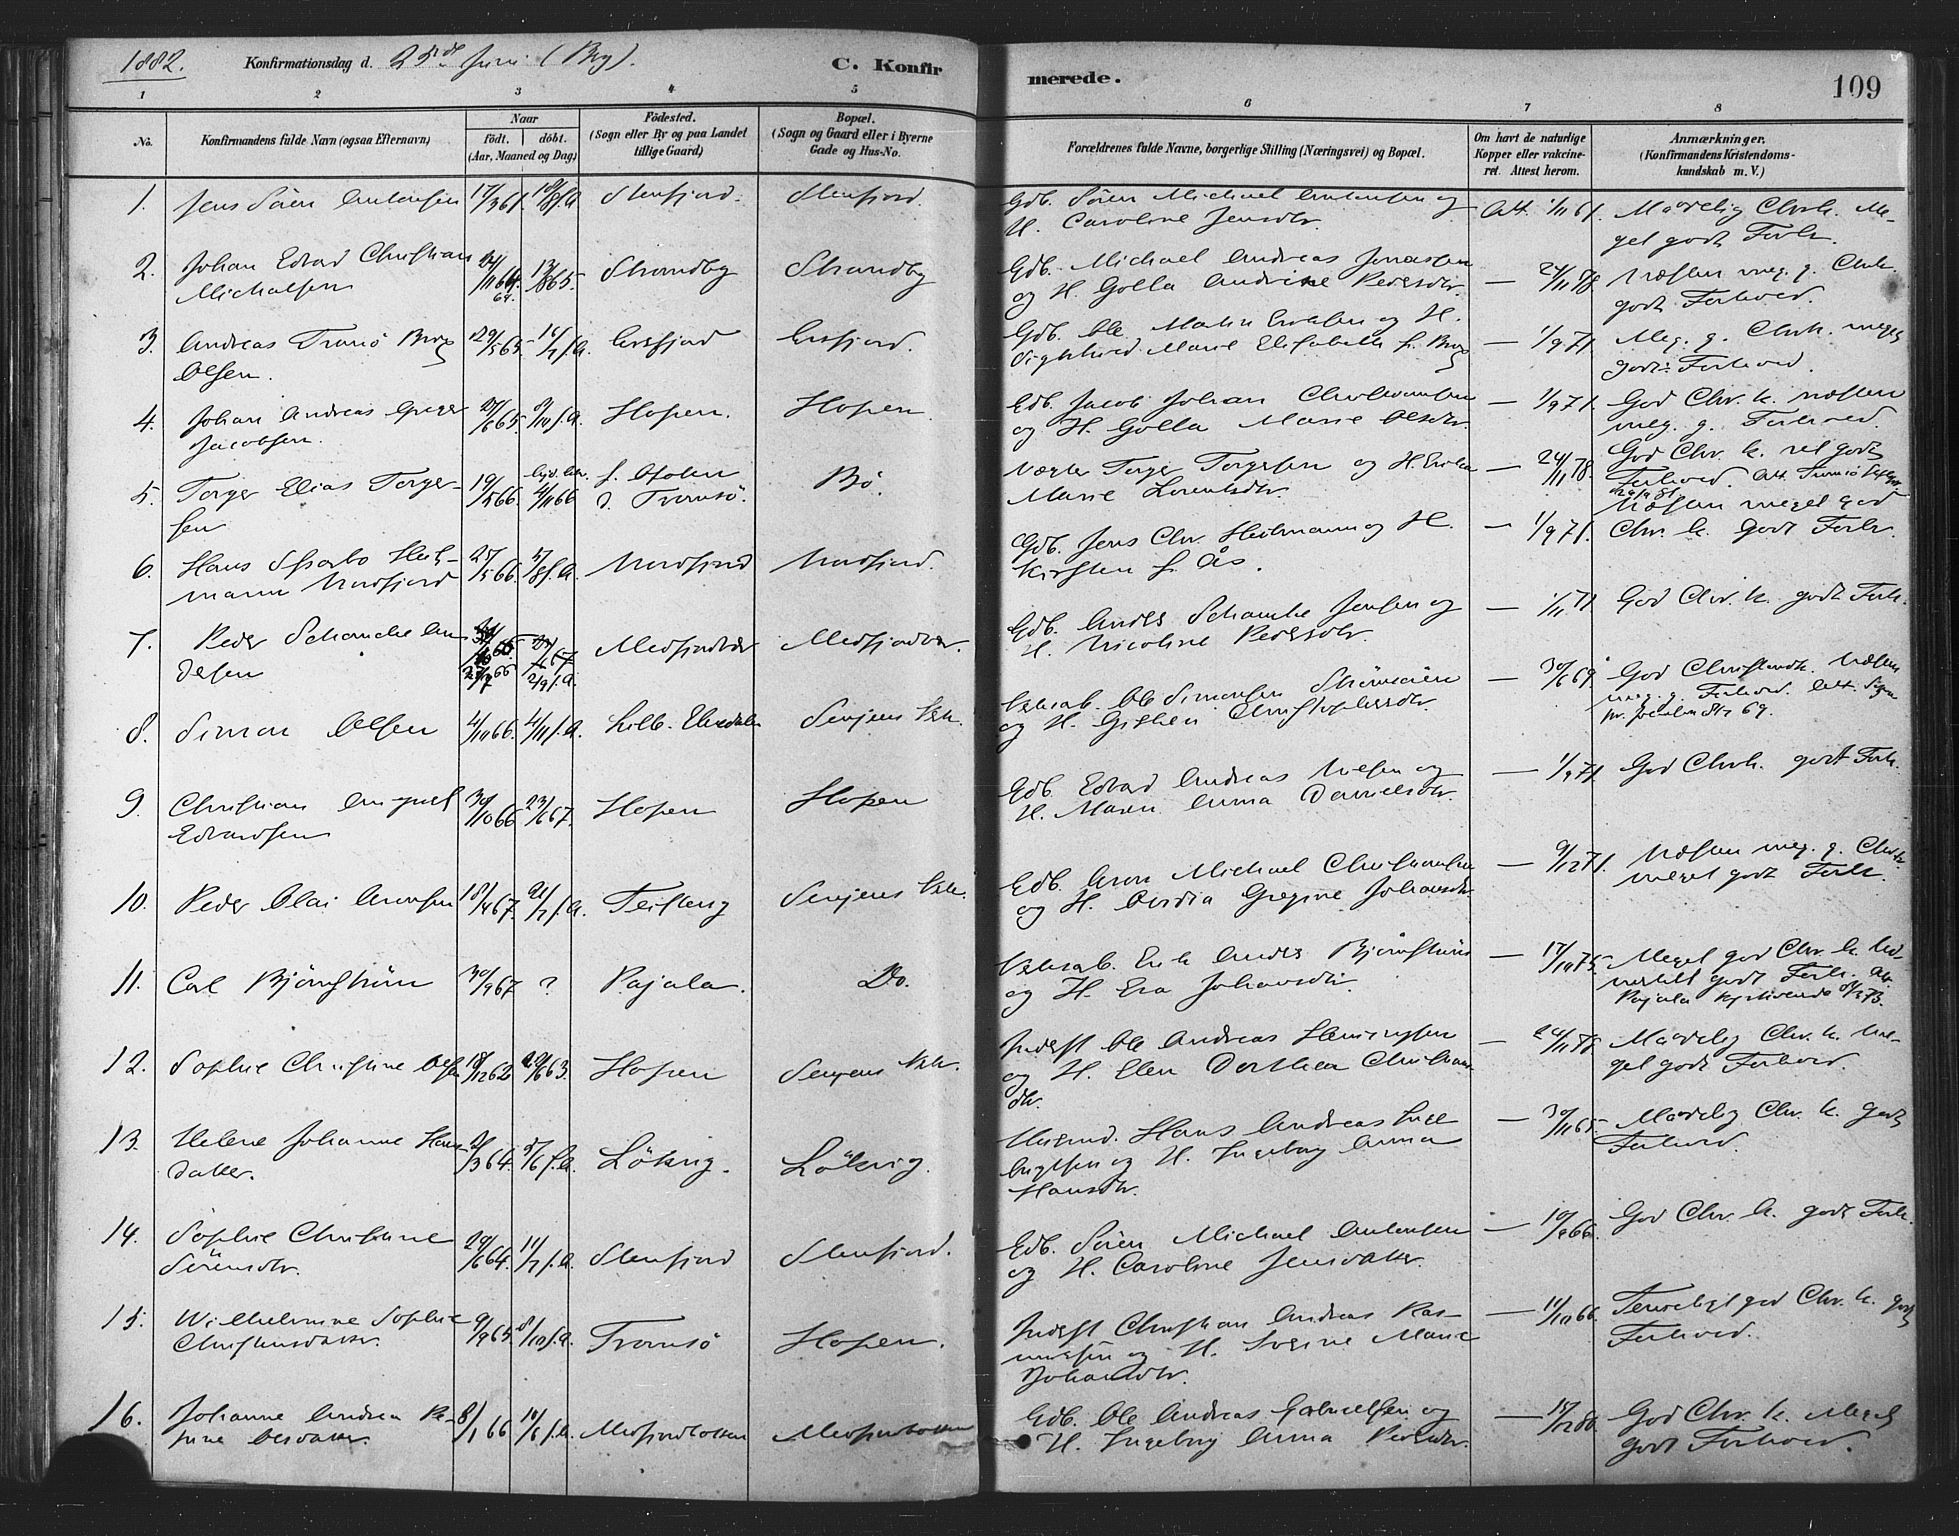 1882. Konfirmationsdag d. 25de Juni (Brg). C. Konfirmerede. 109
1 2 3 4 5 6 7 8
No.
Konfirmandens fulde Navn (ogsaa Efternavn)
Naar
födt. döbt.
(Aar, Maaned og Dag)
Födested.
(Sogn eller By og paa Landet
tillige Gaard)
Bopæl.
(Sogn og Gaard eller i Byerne
Gade og Hus-No.
Forældrenes fulde Navne, borgerlige Stilling (Næringsvei) og Bopæl.
Om havt de naturlige
Kopper eller vakcine-
ret. Attest herom.
Anmærkninger.
(Konfirmandens Kristendoms-
kundskab m. V.)
1. Jens Sören Antonsen 17/3 61. Stenfjord. Stenfjord. Gdb. Sören Michael Antonsen og
H. Caroline Jensdtr. Att. 1/11 61. Maadelig Chrk. Me-
get godt Forh.
2. Johan Edvard Christian
Michalsen 13/8 65. Strandby Strandby Gdb. Michael Andreas Jonassen
og H. Golla Andrine Pedersdtr. — 24/11 78 Næsten meg. g. Chrk.
godt Forhold.
3. Andreas Tromsö Brox
Olsen. 29/5 65. 16/7 s.A. Ersfjord Ersfjord. Gdb. Ole Martin Eriksen og H.
Marie Elisabeth f. Brox — 1/9 71. Meg. g. Chrk. meget
godt Forhold.
4. Johan Andreas Greger
Jacobsen. 27/6 65. 8/10 s.A. Hopen. Hopen. Gdb. Jacob Johan
og H. Golla Marie Olsdtr. — 1/9 71. God Chr. k. næsten
meg. g. Forhold.
5. Torger Elias Torger-
sen 19/5 66. 4/11 66 f. Ofoten
d. Tromsö. Bö. Torger Torgersen og H. Erika
Marie Lorentsdtr. — 24/11 78. God Chr. k. ret godt
Forhold. Att. Tromsö
6. Hans Sparbo Heit-
mann Nordfjord 25/5 66. 5/8 s.A. Nordfjord Nordfjord. Gdb. Jens Chr. Heitmann og H.
Kirsten f. Ås. — 1/9 71. Næsten meget god
Chr. k. Godt Forh.
7. Peder Schanche An-
dersen 27/7 66 2/9 s.A. Medfjordvær Medfjordvær. Gdb. Anders Schanche Jensen og
H. Nicoline Pedersdtr. — 1/11 71 God Chr. k. godt Forh.
8. Simon Olsen 4/10 66. 4/11 s.A. Lilleh. Elvedalen Senjens Ole Simonsen
og H. Christophersdtr. — 30/6 69. God Christendk. Næsten
meg. g. Forhold. Att.
69.
9. Christian August
Edvardsen 30/10 66 23/6 67. Hopen Hopen Gdb. Edvard Andreas Nilsen og
H. Maren Anna Danielsdtr. — 1/9 71. God Chrk. godt Forh.
10. Peder Olai Aronsen 18/4 67. 21/7 s.A. Teisteng Senjens Gdb. Aron Michael Christiansen
og H. Ovidia Gregine Johansdtr — 9/12 71. Næsten meg. g. Chrk.
meget godt Forh.
11. Carl Björnström 30/9 67 ? Pajala. Do. Erik Anders Björnström
og H. Eva Johansdtr. — 17/10 75. Meget god Chr. k. Ud-
mærket godt Forh. Att.
Pajala
12. Sophie Christine Olsen 18/12 62 29/6 63. Hopen Senjens Inderst Ole Andreas Henningsen
og H. Elen Dorthea Christians-
dtr. — 24/11 78 Maadelig Chr. k. Me-
get godt Forhold.
13. Helene Johanne Hans-
datter. 2/3 64. 5/6 s.A. Lökvig. Lökvig. Husmd. Hans Andreas
og H. Ingeborg Anna
Hansdtr. — 30/11 65. Maadelig Chr. k. Godt
Forhold.
14. Sophie Christine
Sörensdtr. 29/6 64. 11/7 s.A. Stenfjord Stenfjord. Gdb. Sören Michael Antonsen
og H. Caroline Jensdatter. — 10/9 66. God Chr. k. godt Forh.
15. Wilhelmine Sophie
Christiansdatter. 9/9 65 8/10 s.A. Tromsö Hopen. Inderst Christian Andreas Ras-
mussen og H. Marie
Johansdtr. — 11/10 66. Temmeligt god Chr. k. godt
Forhold.
16. Johanne Andrea Pe-
trine Olsdatter. 8/1 66 10/6 s.A. Medfjordbotten Medfjordbotten Gdb. Ole Andreas Gabrielsen og
H. Ingeborg Anna Pedersdtr. — 15/12 80. God Chr. k. Meget
godt Forhold.